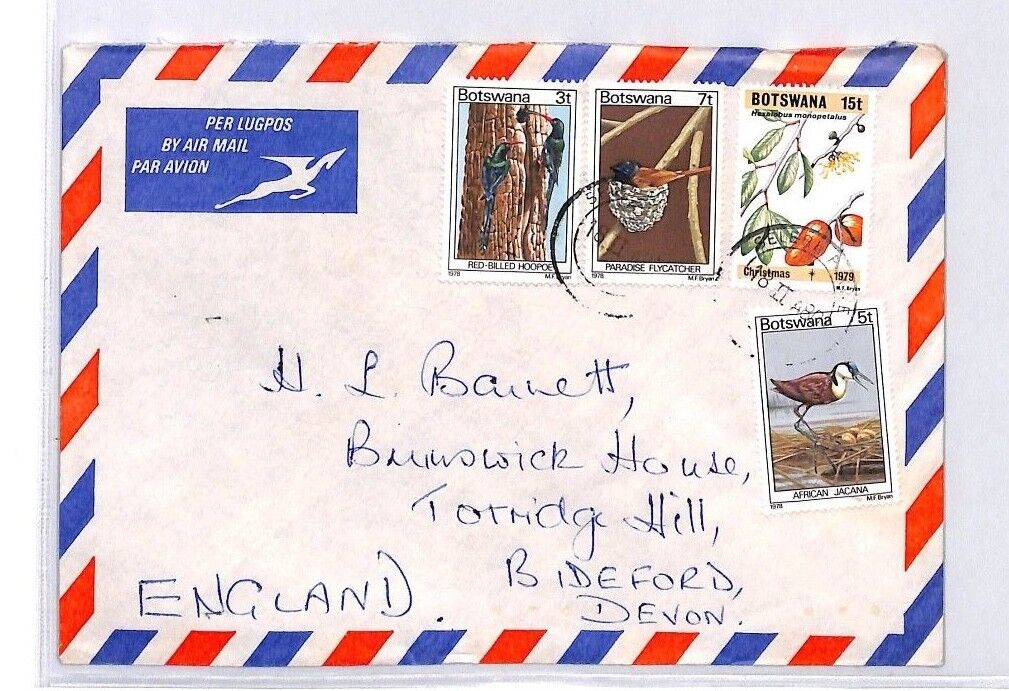 PER LUGPOS
BY AIR MAIL
PAR AVION
Botswana 3t
RED-BILLED HOOPOE
1978 M.F. Bryan
Botswana 7t
PARADISE FLYCATCHER
1978 M.F. Bryan
BOTSWANA 15t
Hexalobus monopetalus
Christmas 1979
M.F. Bryan
Botswana 5t
AFRICAN JACANA
1978 M.F. Bryan
H. L. Barnett,
Brunswick House,
Torridge Hill,
BIDEFORD,
DEVON.
ENGLAND.